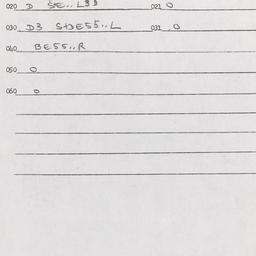 020 D SE.. L33 021 0
030 D3 S+DE55..L 031 0
040 BE55..R
050 0
060 0